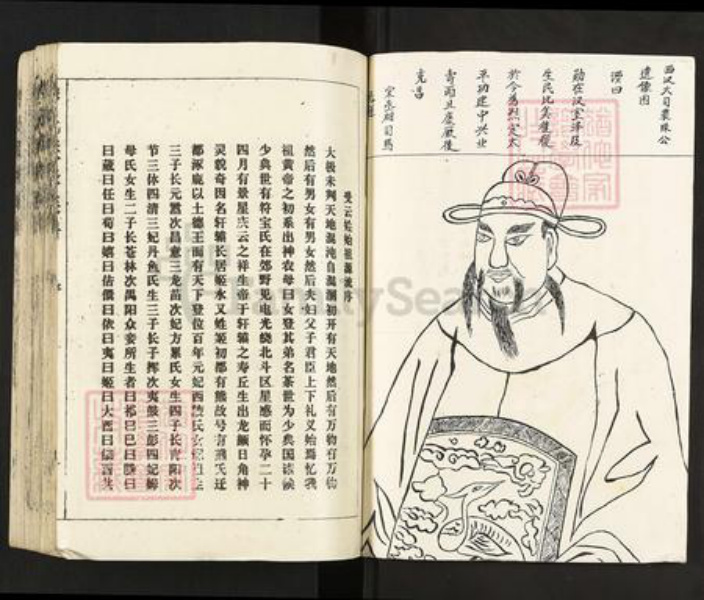 西汉大司農珠公
遺像因
讚曰
勋在汉室澤及
生民比箕稷
於今為烈宋太
平功建中興北
厥後
克昌
宋岳尉司馬
受云姓始祖源流序
太极未判天地混沌自混濛初开有天地然后有万物有万物
然后有男女有男女然后夫妇父子君臣上下礼义始焉忆我
祖黄帝之初系出神农母曰女登其弟名茶世为少典国诸候
少典世有符宝氏在郊野见电光绕北斗区星感而怀孕二十
四月有景星庆云之祥生帝于轩辕之寿丘生出龙颜日角神
灵貌奇因名轩辕长居姬水又姓姬初都有熊故号有熊氏迁
都涿鹿以土德王而有天下登位百年元妃西陵氏女嫘祖生
三子长元嚣次昌意三龙苗次妃方累氏女生四子长青阳次
节三休四清三妃丹鱼氏生三子长子挥次夷鼓三彭四妃嫫
母氏女生二子长苍林次禺阳众妾所生者曰祁曰巳曰滕曰
葴曰任曰荀曰嬉曰佶儇曰依曰夷曰姬曰大酉曰